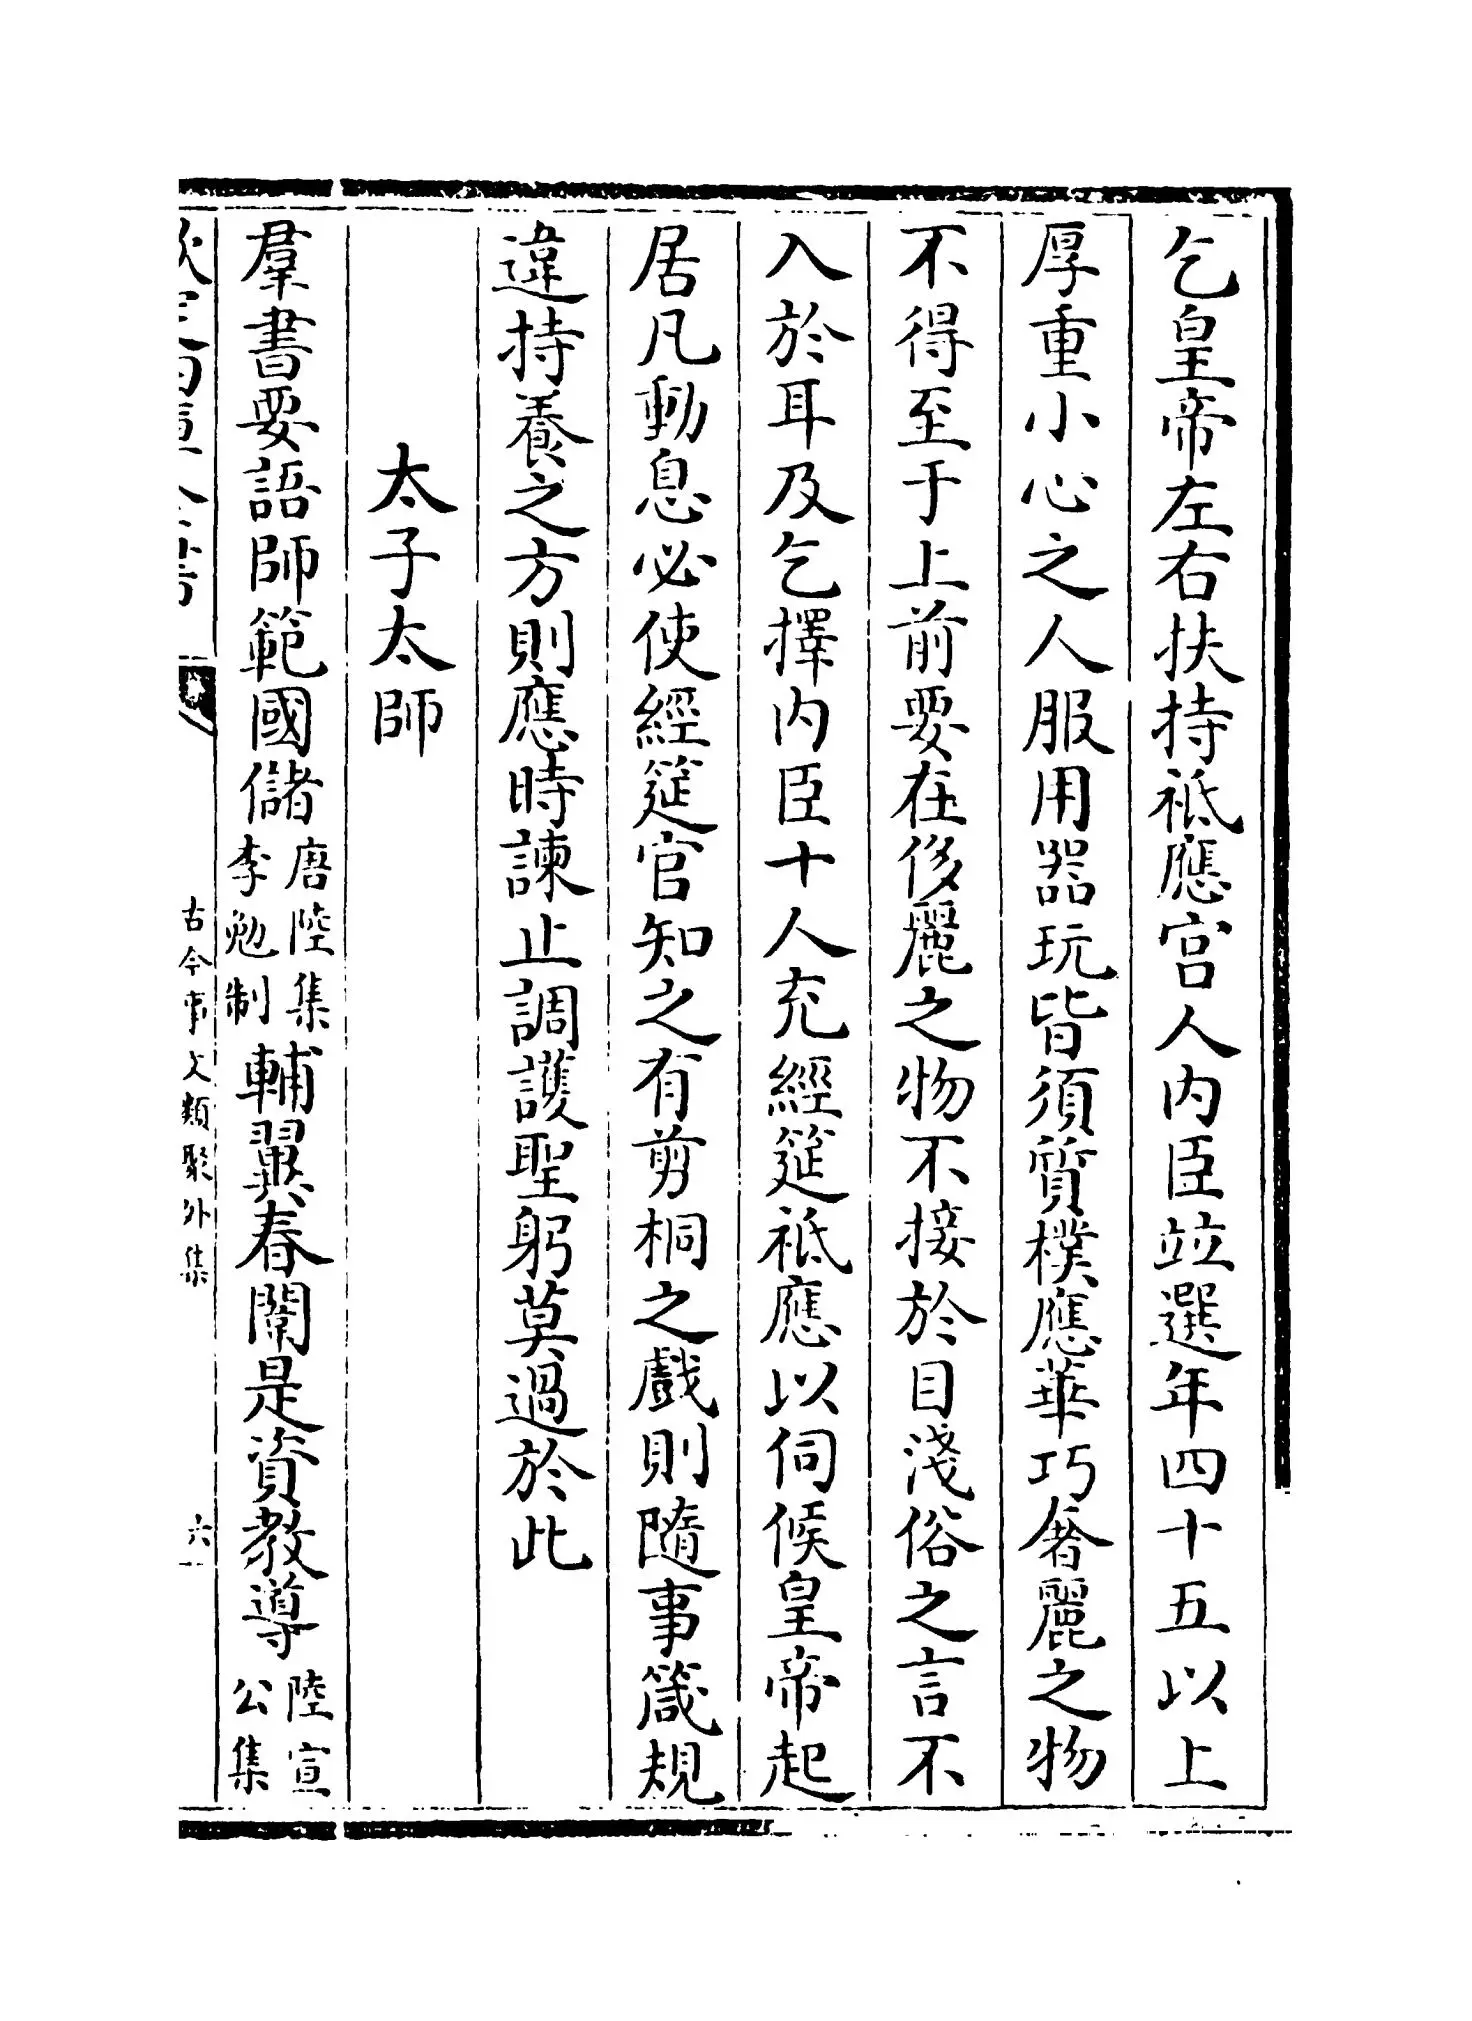 乞皇帝左右扶持祗應宫人内臣竝選年四十五以上
厚重小心之人服用器玩皆須質樸應華巧奢麗之物
不得至于上前要在侈麗之物不接於目淺俗之言不
入於耳及乞擇内臣十人充經筵祗應以伺候皇帝起
居凡動息必使經筵官知之有剪桐之戲則隨事箴規
違持養之方則應時諫止調護聖躬莫過於此
太子太師
羣書要語師範國儲唐陸集李勉制輔翼春闈是資教導陸宣公集
古今事文類聚外集
六